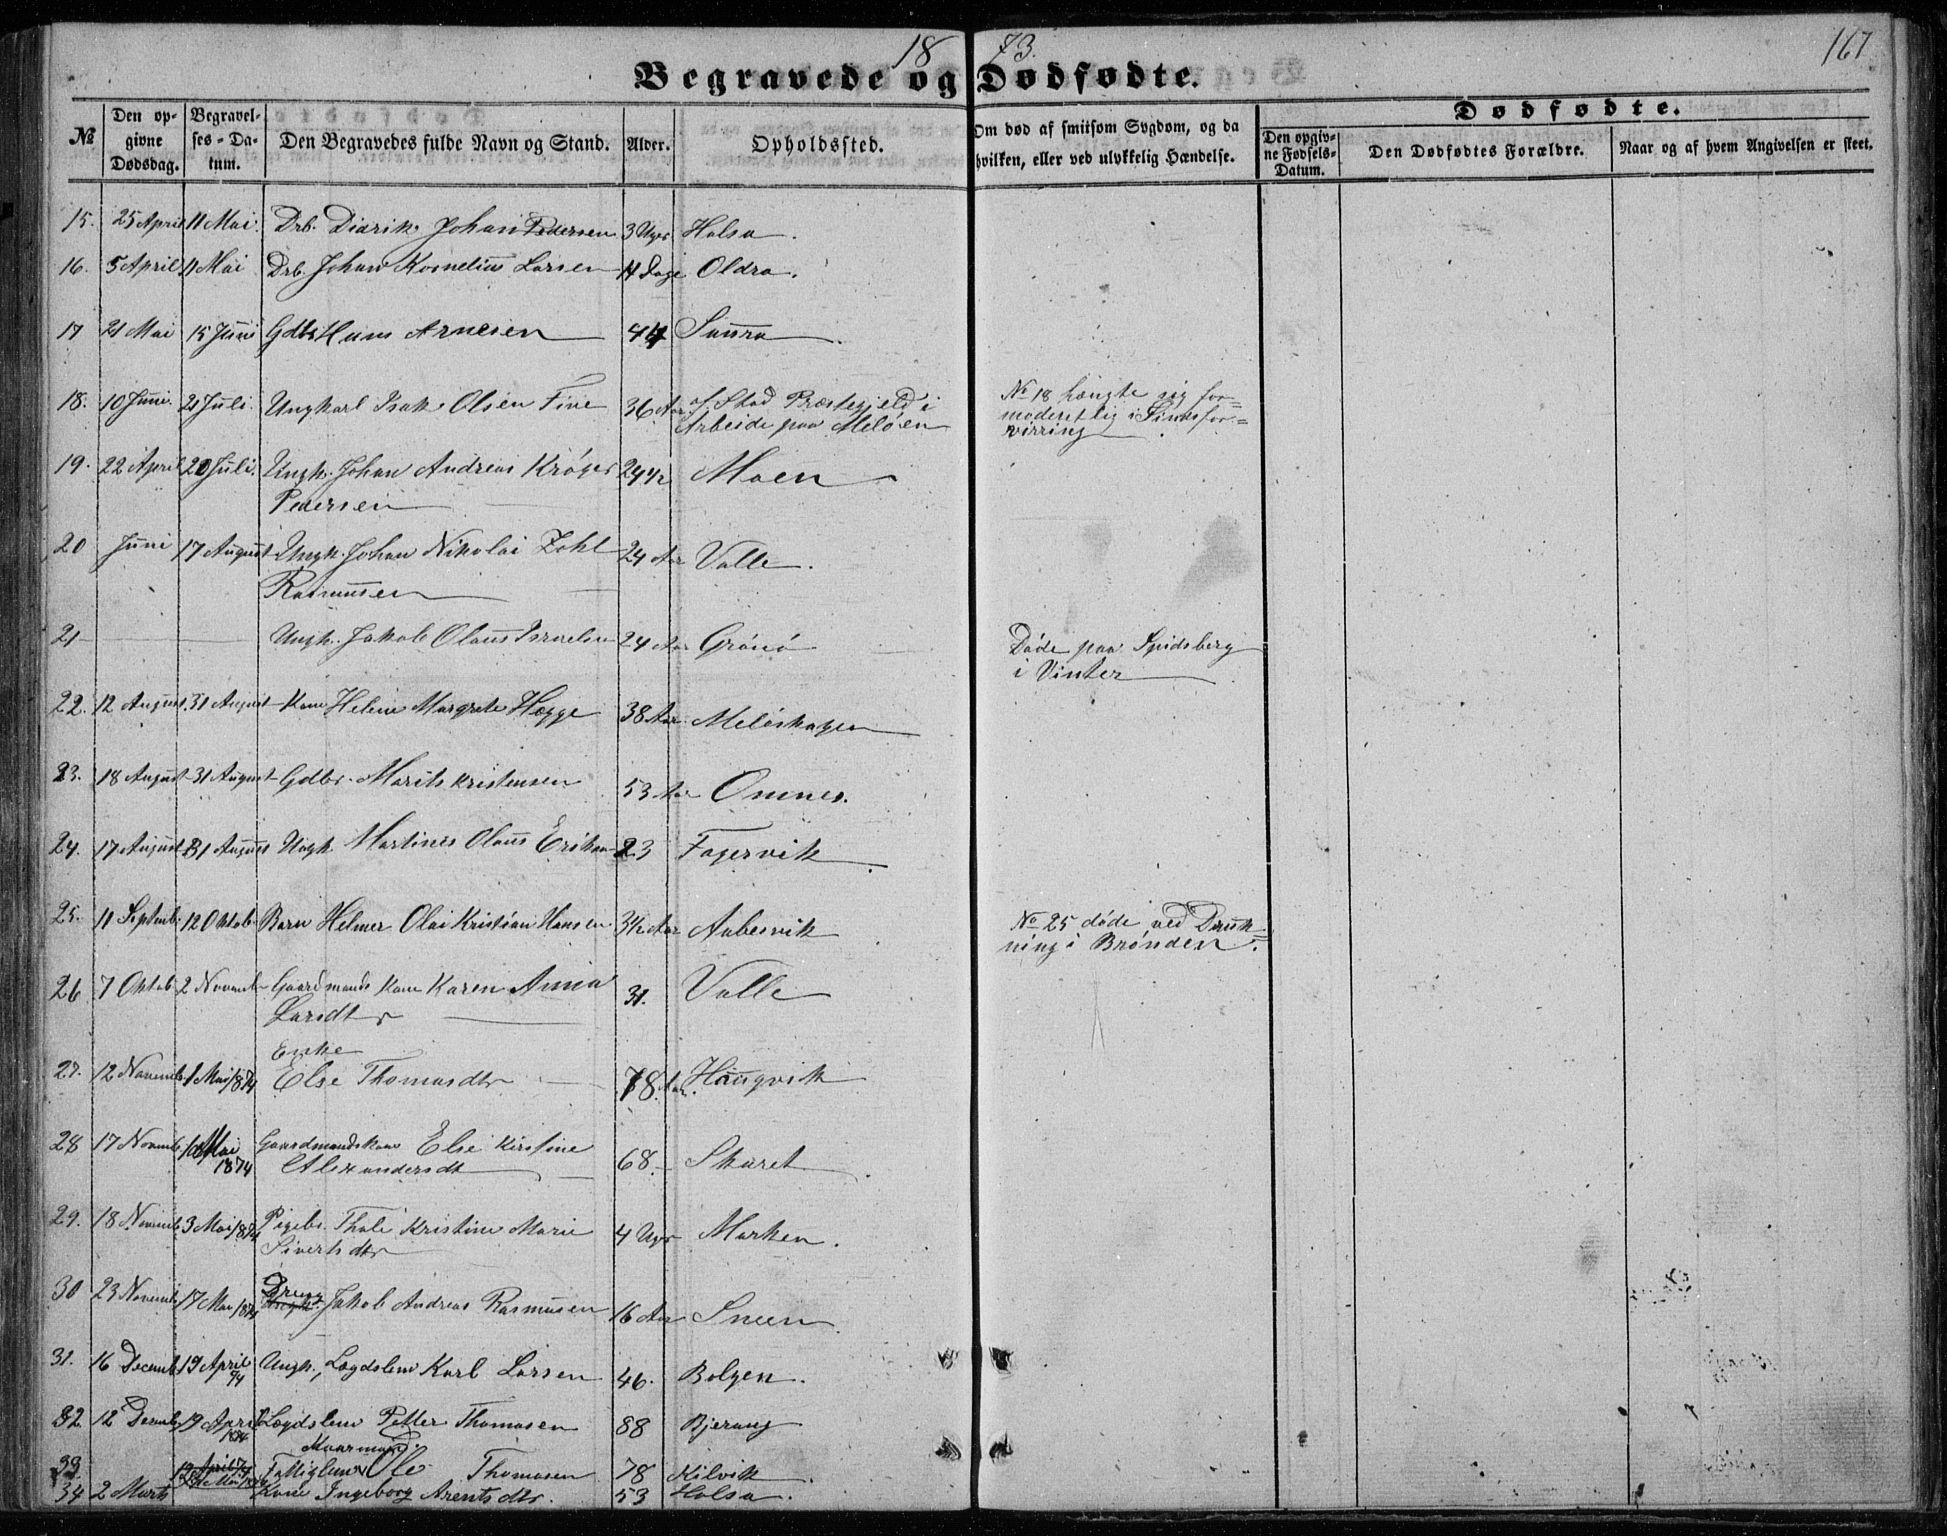 1873.
167
Begravede og Dødfødte.
№
Den opgivne Dødsdag.
Begravelses-Datum.
Den Begravedes fulde Navn og Stand.
Alder.
Opholdssted.
Om død af smitsom Sygdom, og da hvilken, eller ved ulykkelig Hændelse.
Dødfødte.
Den opgivne Fødsels-Datum.
Den Dødfødtes Forældre.
Naar og af hvem Angivelsen er skeet.
15. 25 April 11 Mai. Drb. Didrik Johan Pedersen 3 Uger Halsa.
16. 5 April 11 Mai Drb. Johan Kornelius Larsen 11 Dage Oldra.
17 21 Mai 15 Juni Gdbr Hans Arnesen 44 Saura.
18. 10 Juni. 21 Juli Ungkarl Isak Olsen Five 36 Aar af Stad Præstegjeld i
Arbeide paa Meløen
№ 18 hængte sig for=
modentlig i Sindsfor=
virring
19. 22 April 20 Juli. Ungk. Johan Andreas Krøger 29 1/2 Moen
Pedersen
20 Juni 17 August Ungk. Johan Nikolai Zahl 24 Aar Valle.
Rasmussen
21 Ungk. Jakob Olaus Israelsen 24 Aar Grønø
Døde paa Spidsberg
i Vinter
22. 12 August. 31 August Kone Helene Margrete Hegge 38 Aar Meløskagen
23. 18 August 31 August Gdbr. Morits Kristensen 53 Aar Omnes.
24. 17 August 31 August Ungk Martines Olaus Eriksen 23 Fagervik
25. 11 Septemb. 12 Oktob. Barn Helmer Olai Kristian Hansen 3 1/2 Aar Aabesvik
№ 25 døde ved Druk=
ning i Brønden.
26 7 Oktob 2 Novemb Gaardmands Kone Karen Anna 31. Valle
Larsdtr
Enke
27. 12 Novemb. 1 Mai 1874 Else Thomasdtr 78 Aar. Haugvik
28 17 Novemb. 10 Mai 1874 Gaardmandskone Else Kirstine 68. Skaret
Alexandersdt
29. 18 Novemb 3 Mai 1874 Pigebr. Thale Kristine Marie 4 Uger Marken.
Sivertsdtr
30 23 Novemb. 17 Mai 1874 Dreng Jakob Andreas Rasmusen 16 Aar Sneen
31. 16 Decemb 19 April 74 Ungk, Lægdslem Karl Larsen 46. Bolgen.
32. 12 Decemb. 19 April 1874 Lægdslem Petter Thomasen 88 Bjerang
33. 12 April 74 Fattiglem Ole Thomasen 78 Kilvik
34 2 Marts Kone Ingeborg Arentsdtr. 53 Halsa.